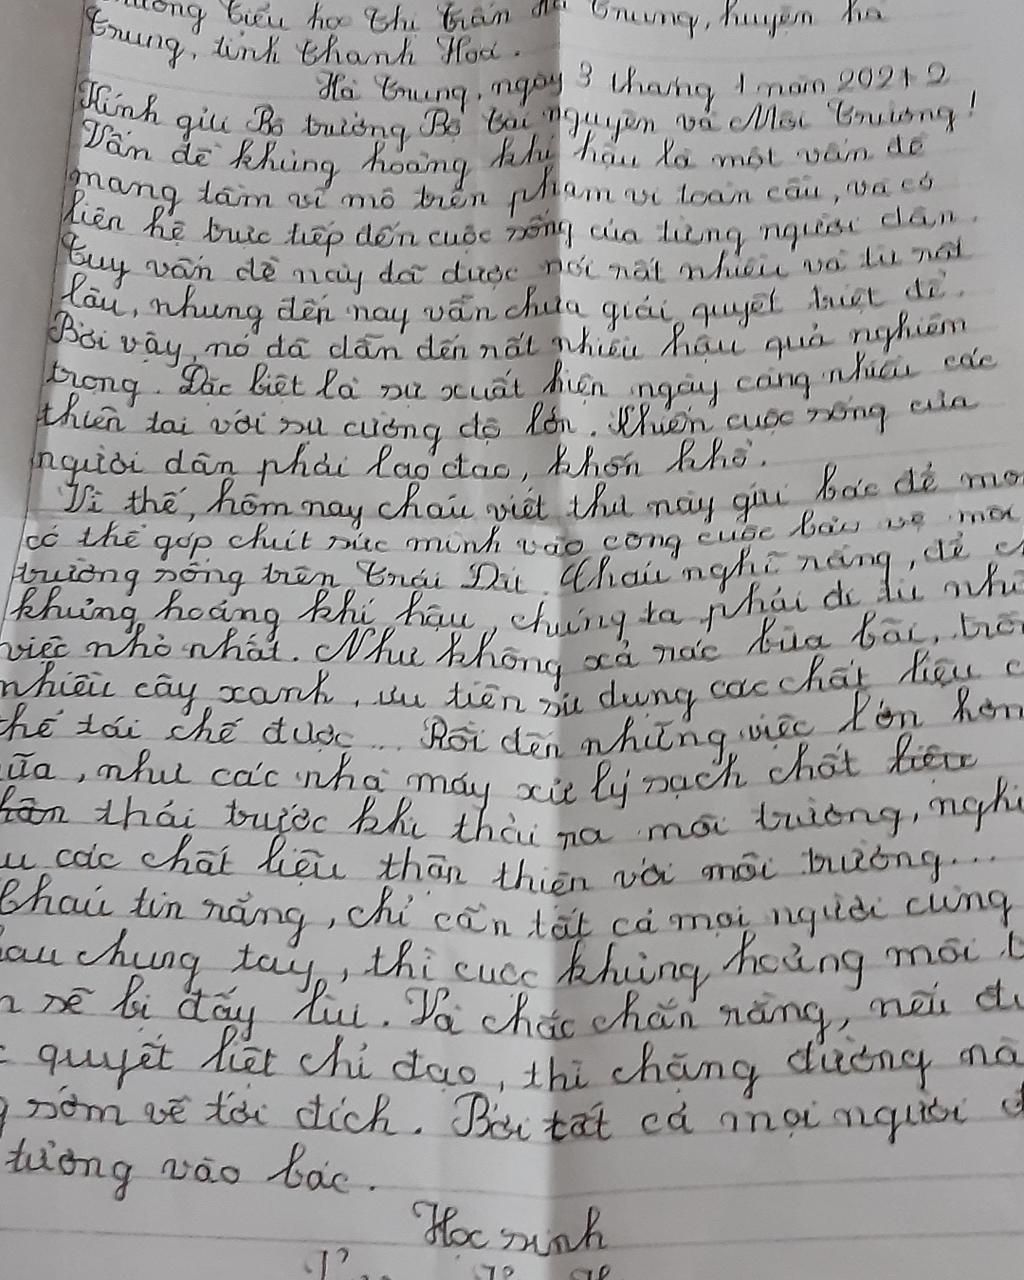 tiểu học thị trấn Hà Trung, huyện Hà
Trung, tỉnh Thanh Hoá.
Hà Trung, ngày 3 tháng 1 năm 2022
Kính gửi Bộ trưởng Bộ tài nguyên và Môi trường!
Vấn đề khủng hoảng khí hậu là một vấn đề
mang tầm vĩ mô trên phạm vi toàn cầu, và có
liên hệ trực tiếp đến cuộc sống của từng người dân.
Tuy vấn đề này đã được nói rất nhiều và từ rất
lâu, nhưng đến nay vẫn chưa giải quyết triệt để.
Bởi vậy, nó đã dẫn đến rất nhiều hậu quả nghiêm
trọng. Đặc biệt là sự xuất hiện ngày càng nhiều các
thiên tai với sự cường độ lớn. Khiến cuộc sống của
người dân phải lao đao, khốn khổ.
Vì thế, hôm nay cháu viết thư này gửi bác để mo
có thể góp chút sức mình vào công cuộc bảo vệ môi
trường sống trên Trái Đất. Cháu nghĩ rằng, để c
khủng hoảng khí hậu, chúng ta phải đi từ nhữ
việc nhỏ nhất. Như không xả rác bừa bãi, trồ
nhiều cây xanh, ưu tiên sử dụng các chất liệu c
thể tái chế được... Rồi đến những việc lớn hơn
ữa, như các nhà máy xử lý sạch chất liệu
thải trước khi thải ra môi trường, nghi
u các chất liệu thân thiện với môi trường...
Cháu tin rằng, chỉ cần tất cả mọi người cùng
au chung tay, thì cuộc khủng hoảng môi t
n sẽ bị đẩy lùi. Và chắc chắn rằng, nếu đư
c quyết liệt chỉ đạo, thì chặng đường nà
g sớm về tới đích. Bởi tất cả mọi người đ
tưởng vào bác.
Học sinh